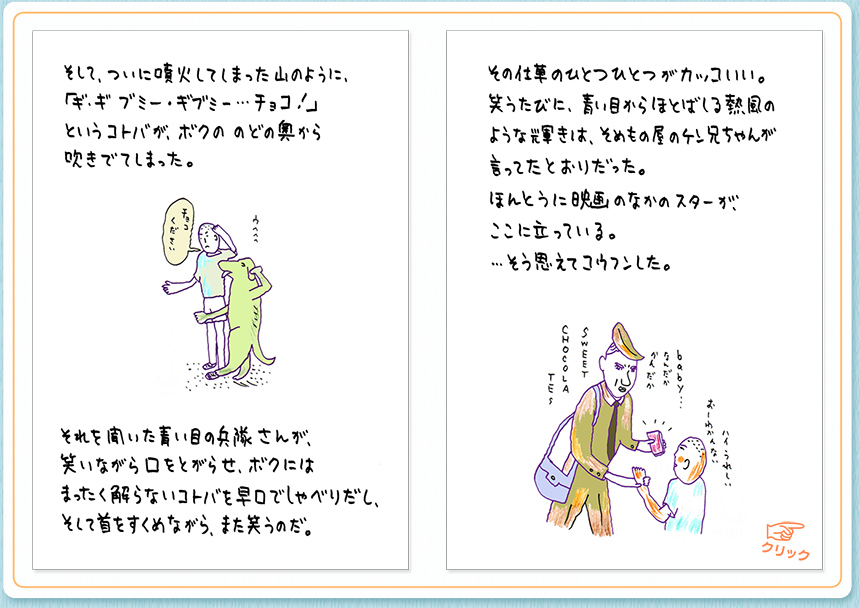 そして、ついに噴火してしまった山のように、
「ギ・ギ ブミー・ギブミー…チョコ!」
というコトバが、ボクの のどの奥から
吹きでてしまった。
チョコ
ください
ウヘヘヘ
それを聞いた青い目の兵隊さんが、
笑いながら口をとがらせ、ボクには
まったく解らないコトバを早口でしゃべりだし、
そして首をすくめながら、また笑うのだ。
その仕草のひとつひとつがカッコいい。
笑うたびに、青い目からほとばしる熱風の
ような輝きは、そめもの屋のケン兄ちゃんが
言ってたとおりだった。
ほんとうに映画のなかのスターが、
ここに立っている。
…そう思えてコウフンした。
baby…
なんだか
かんだか
SWEET
CHOCOLA
TES
ハイ、うれしい
おーわかんない
クリック